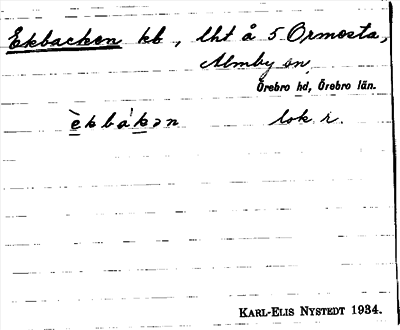 Ekbacken kb, lht å 5 Ormesta,
Almby sn,
Örebro hd, Örebro län.
è k b á k ə n lok. r.
KARL-ELIS NYSTEDT 1934.